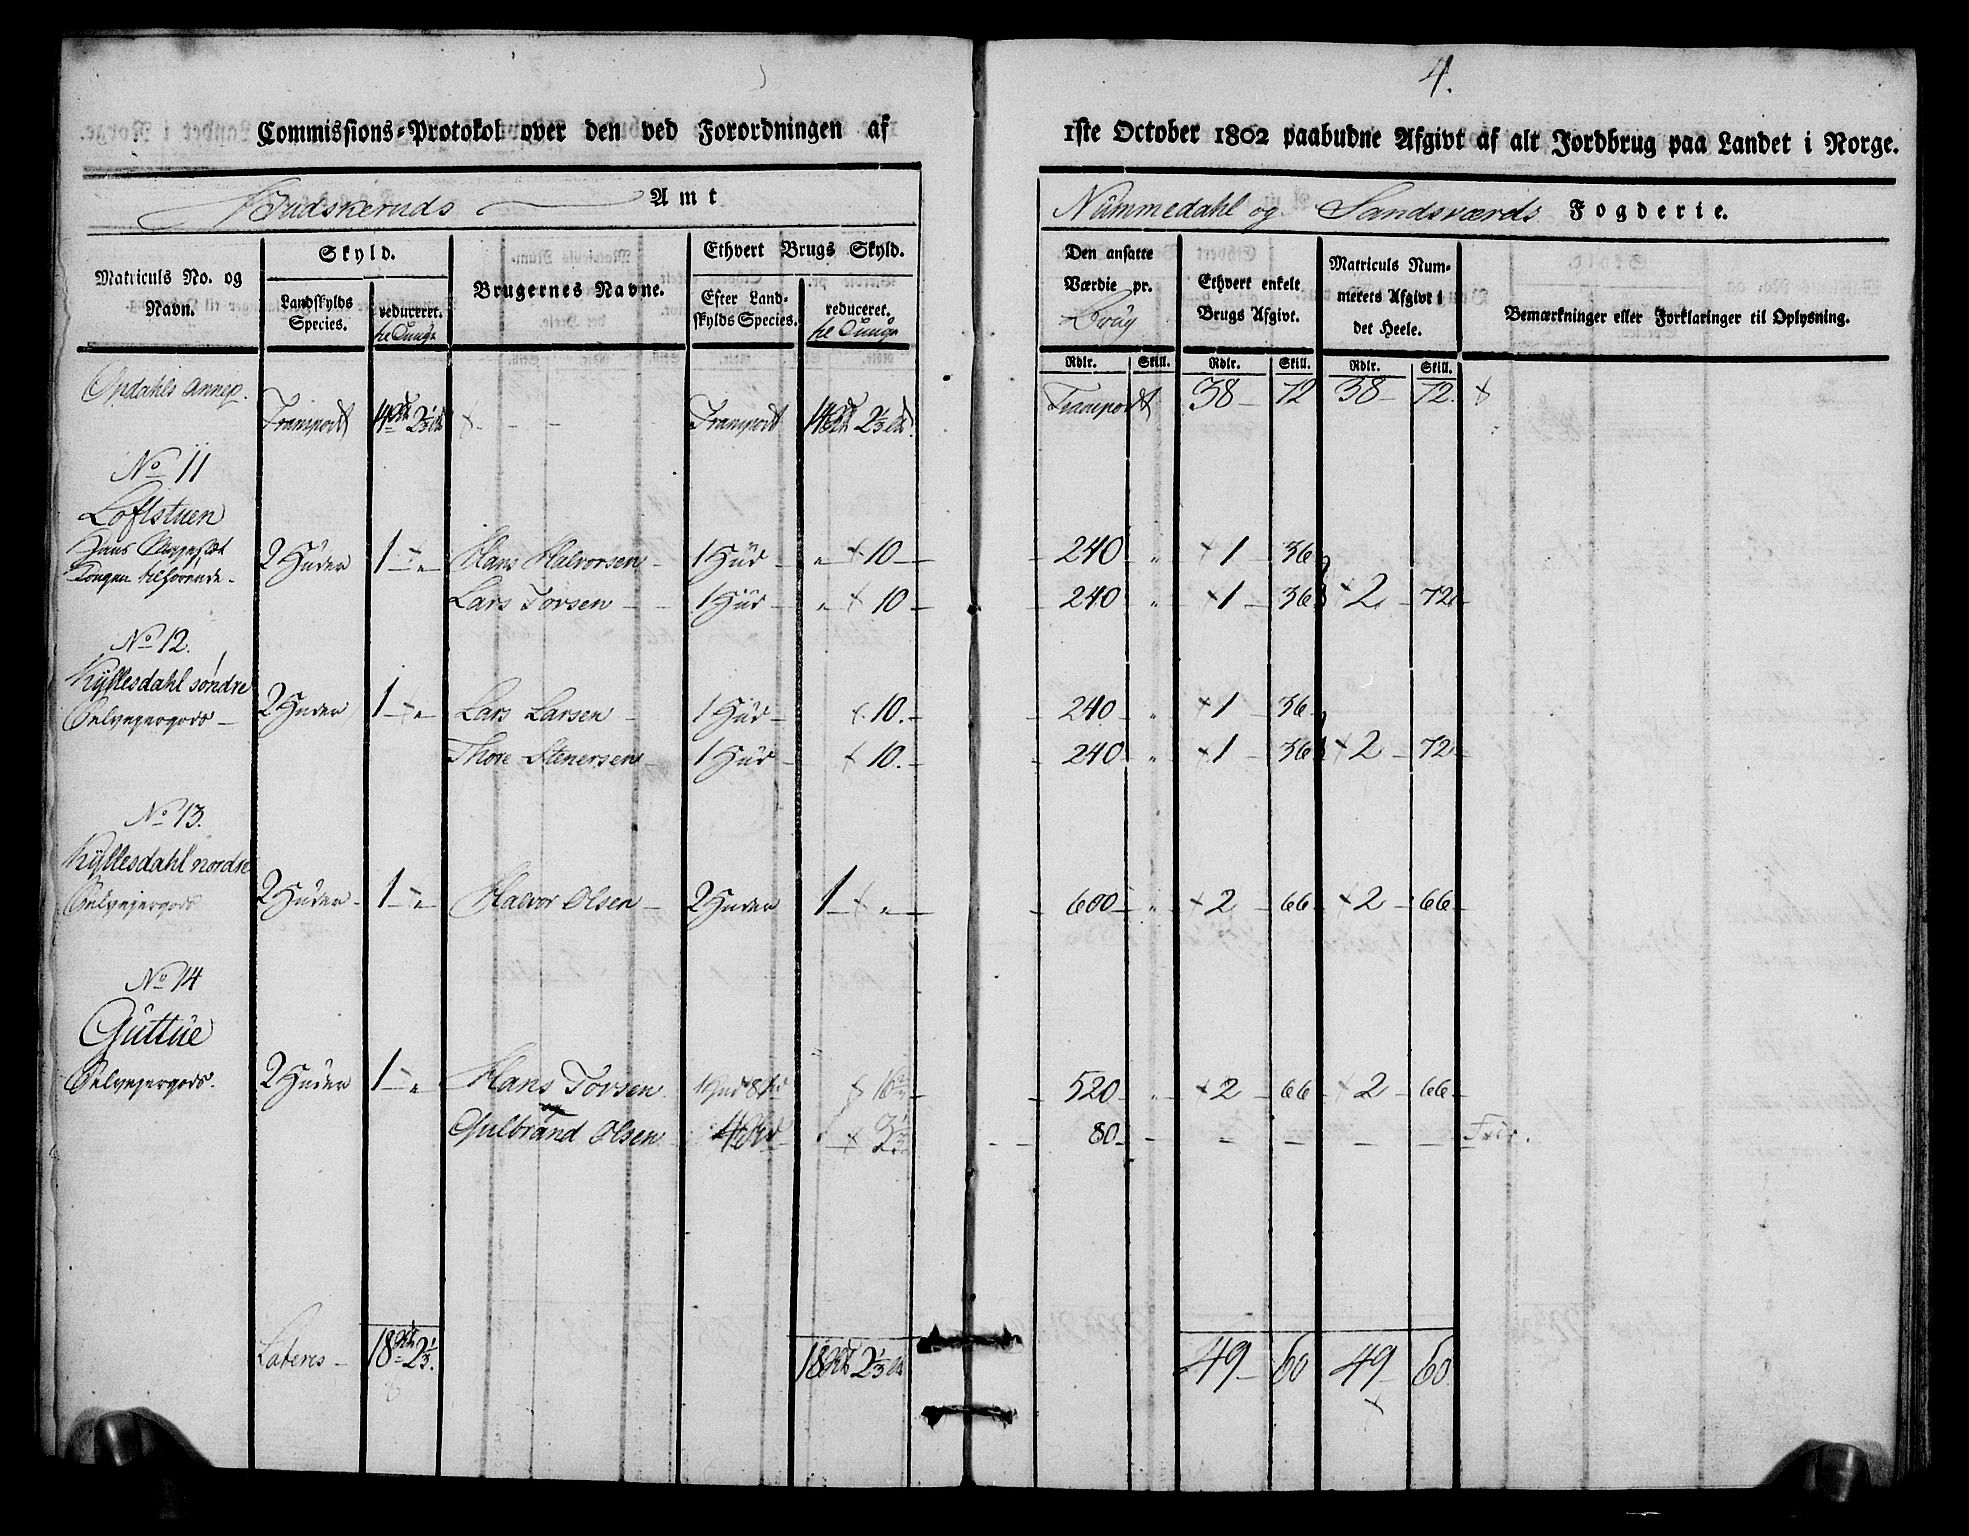 4.
Commissions-Protokol over den ved Forordningen af 1ste October 1802 paabudne Afgivt af alt Jordbrug paa Landet i Norge.
Budskeruds Amt Nummedahl og Sandsværds Fogderie.
Matriculs No. og Navn. Skyld. Brugernes Navne. Ethvert Brugs Skyld. Den ansatte Værdie pr. Brug Ethvert enkelt Brugs Afgivt. Matriculs Nummerets Afgivt i det Heele. Bemærkninger eller Forklaringer til Oplysning.
Landskylds Species. reduceret. Efter Landskylds Species. reduceret.
Rdlr. Skill. Rdlr. Skill. Rdlr. Skill.
Opdahls Annex.
Transport 2⅓ Transport 2⅓ Transport 38 72 38 72.
No 11
Loftstuen
Hans Majestæt 2 Huder 1 " Hans Halvorsen 1 Hud " 10 240 " 1 36
Kongen tilhørende Lars Torsen 1 Hud " 10 240 " 1 36 2 72
No 12.
Kyllesdahl søndre
Selvejergods 2 Huder 1 " Lars Larsen 1 Hud 10. 240 " 1 36
Thore Stenersen 1 Hud 10. 240 " 1 36 2 72
No 13.
Kyllesdahl nordre
Selvejergods 2 Huder 1 " Halvor Olsen 2 Huder 1 " 600 " 2 66 2 66
No 14
Guttue
Selvejergods. 2 Huder 1 " Hans Torsen 1 Hud 8 520 " 2 66 2 66
og
Gulbrand Olsen 4 80 Frie.
Lateres 18 2⅓. 18 2⅓ 49 60 49 60